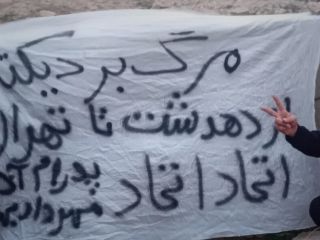 مرگ بر دیکت
از دهدشت تا تهرا
اتحاد اتحاد
پدرام آ
مهرداد